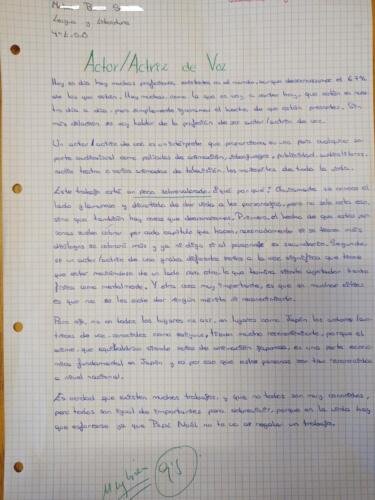 Lengua y Literatura
4º E.S.O
Actor/Actriz de Voz
Hoy en día hay muchas profesiones existentes en el mundo, aunque desconocemos el 67%
de las que están. Hay muchas, como la que os voy a contar hoy, que están en nues-
tro día a día, pero simplemente ignoramos el hecho de que estén presentes. Sin
más dilación os voy hablar de la profesión de ser actor/actriz de voz.
Un actor/actriz de voz es un intérprete que proporciona su voz para cualquier so-
porte audiovisual como películas de animación, videojuegos, publicidad, audiolibros,
radio teatro o series animadas de televisión, los noticieros de toda la vida.
Este trabajo está un poco sobrevalorado. ¿Y qué por qué? Obviamente se conoce el
lado glamuroso y divertido de dar vida a los personajes, pero no solo esta eso,
sino que también hay cosas que desconocemos. Primero, el hecho de que estas per-
sonas suelen cobrar por cada capítulo que hacen, normalmente si se tienen más
diálogos se cobrará más y ya ni digo si el personaje es secundario. Segundo,
ser un actor/actriz de voz graba diferentes textos a la vez significa que tienes
que estar moviéndose de un lado para otro, lo que termina siendo agotador tanto
física como mentalmente. Y otra cosa muy importante, es que en muchos sitios
es que no se les suele dar ningún mérito ni reconocimiento.
Pero ojo, no en todos los lugares es así, en lugares como Japón los actores/ac-
trices de voz, conocidos como seiyuus, tienen mucho reconocimiento, porque el
anime, que equivaldría siendo series de animación japonesa, es una parte econó-
mica fundamental en Japón y es por eso que estas personas son tan reconocidas
a nivel nacional.
Es verdad que existen muchos trabajos, y que no todos son muy conocidos,
pero todos son igual de importantes para sobrevivir, porque en la vida hay
que esforzarse ya que Papá Noël no te va a regalar un trabajo.
Muy bien
9'5